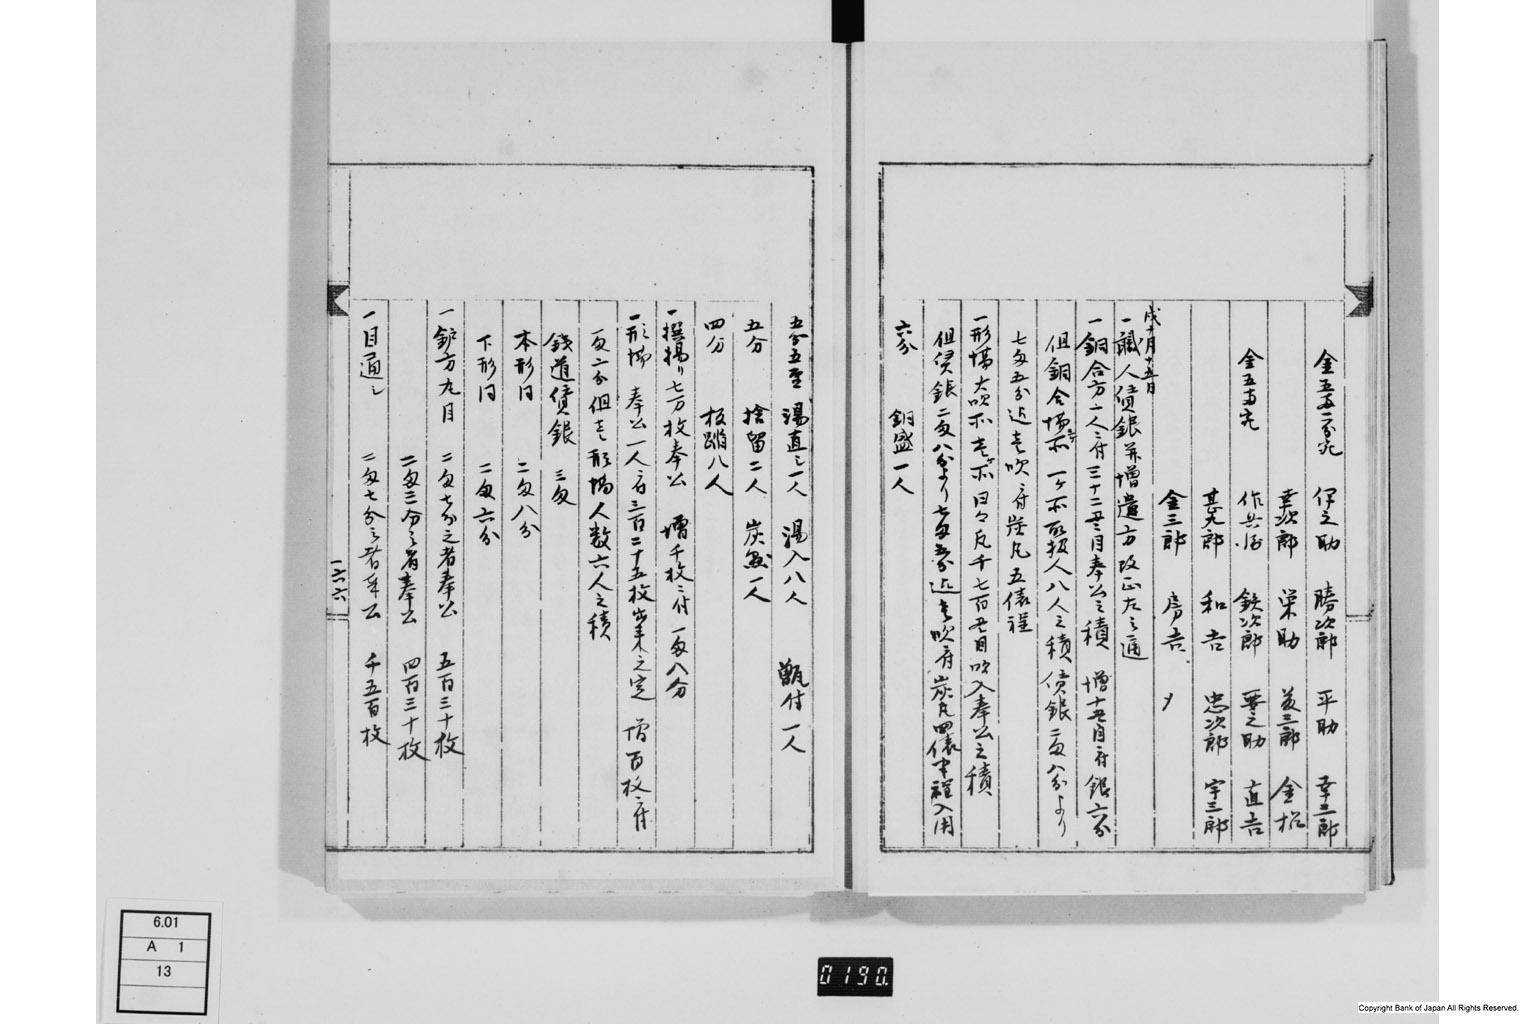 金五両一分宛 伊之助 勝次郎 平助 幸三郎
幸次郎 栄助 茂三郎 金松
金五両宛 作兵衛 鉄次郎 要之助 直吉
甚九郎 和吉 忠次郎 宇三郎
金三郎 房吉 〆
戌十月十五日
一職人賃銀并増遣方改正左之通
一銅合方一人ニ付三十二〆目奉公之積 増十〆目ニ付銀六分
但銅合場所一ケ所取扱人八人之積賃銀二匁八分より
七匁五分迄壱吹ニ付炭凡五俵程
一形場大吹所壱ケ所日々凡千七百〆目吹入奉公之積
但賃銀二匁八分より七匁五分迄壱吹ニ付炭凡四俵半程入用
六分 銅盛一人
五分五厘 湯直シ一人 湯入八人 甑付一人
五分 捨留二人 炭一人
四分 板踏八人
一撰揚り七万枚奉公 増千枚ニ付一匁八分
一形場 奉公一人ニ付三百二十五枚出来之定 増百枚ニ付
一匁二分但壱形場人数六人之積
銭道賃銀 三匁
本形同 二匁八分
下形同 二匁六分
一鈩方九月 二匁七分之者奉公 五百三十枚
二匁三分之者奉公 四百三十枚
一目通シ 二匁七分之者奉公 千五百枚
一六六
6.01
A 1
13
0190.
Copyright Bank of Japan All Rights Reserved.